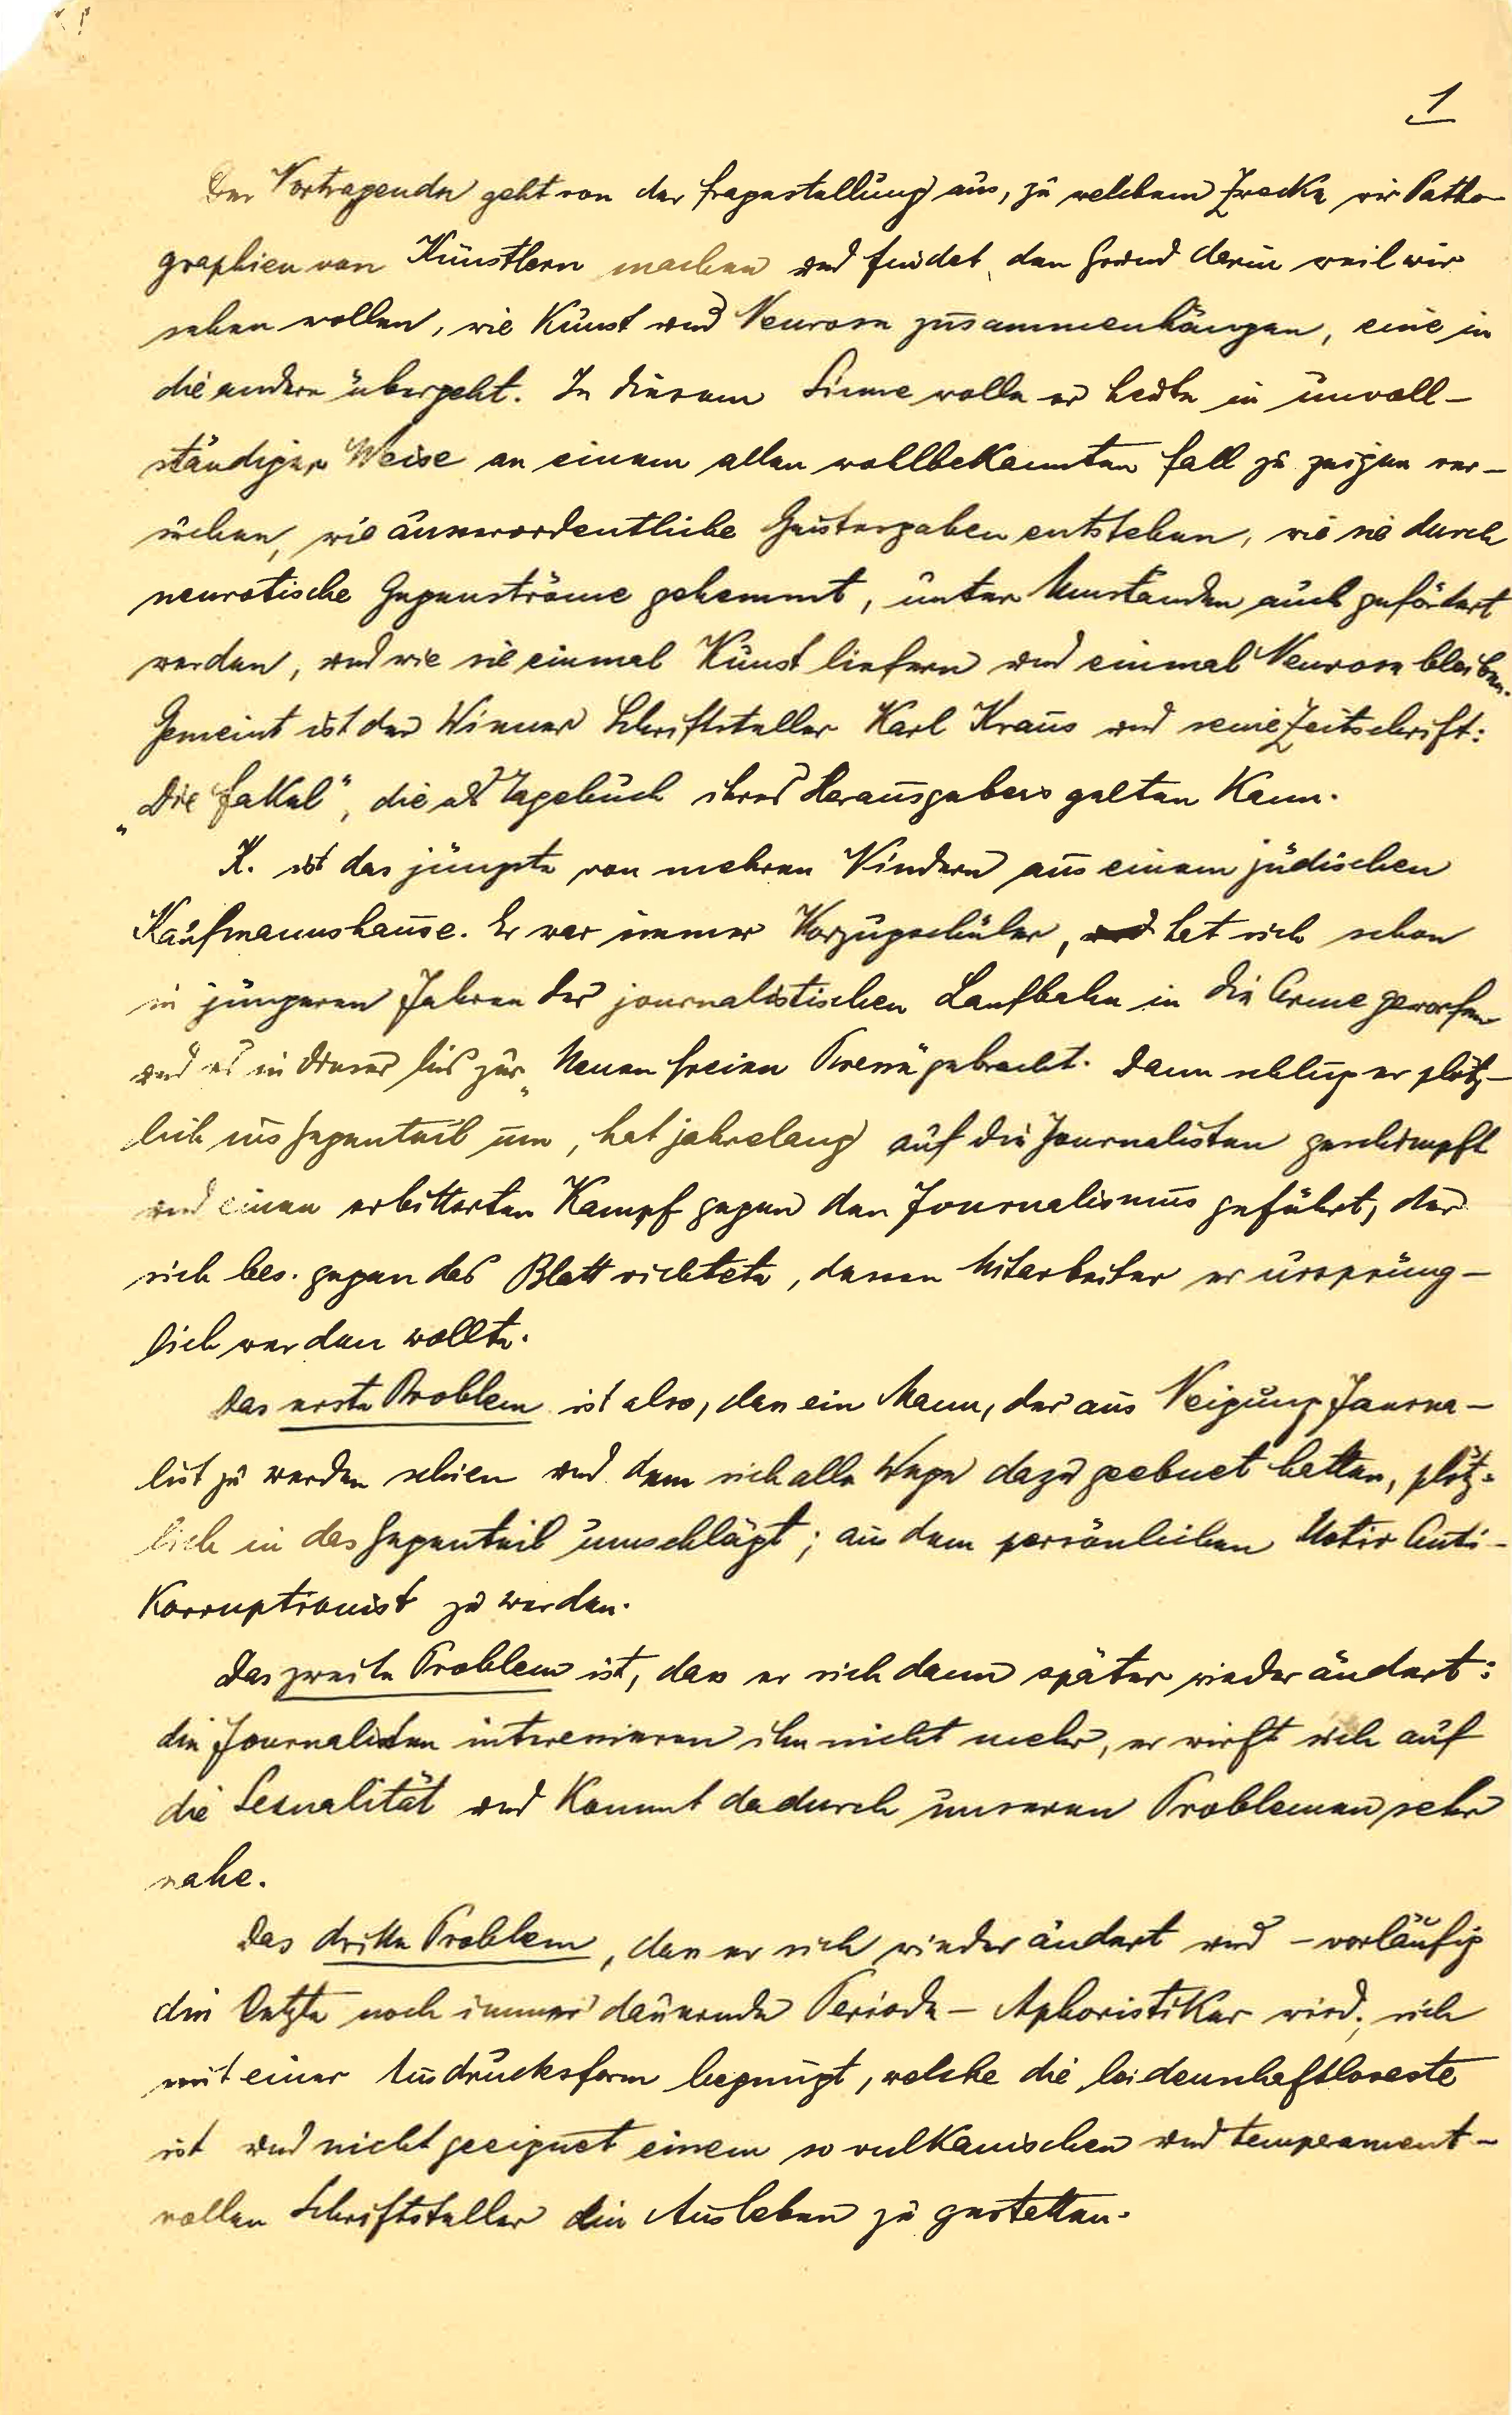 1
Der Vortragende geht von der Fragestellung aus, zu welchem Zwecke wir Patho-
graphien von Künstlern machen und findet den Grund darin weil wir
sehen wollen, wie Kunst und Neurose zusammenhängen, eine in
die andere übergeht. In diesem Sinne wolle er heute in unvoll-
ständiger Weise an einem allen wohlbekannten Fall zu zeigen ver-
suchen, wie ausserordentliche Geistesgaben entstehen, wie sie durch
neurotische Gegenströme gehemmt, unter Umständen auch gefördert
werden, und wie sie einmal Kunst liefern und einmal Neurose bleiben.
Gemeint ist der Wiener Schriftsteller Karl Kraus und seine Zeitschrift:
„Die Fakel“, die als Tagebuch ihres Herausgebers gelten kann.
K. ist das jüngste von mehren Kindern aus einem jüdischen
Kaufmannshause. Er war immer Vorzugschüler, hat sich schon
in jüngeren Jahren der journalistischen Laufbahn in die Arme geworfen
und es in dieser bis zur „Neuen freien Presse“ gebracht. Dann schlug er plötz-
lich ins Gegenteil um, hat jahrelang auf die Journalisten geschimpft
und einen erbitterten Kampf gegen den Journalismus geführt, der
sich bes. gegen das Blatt richtete, dessen Mitarbeiter er ursprüng-
lich werden wollte.
Das erste Problem ist also, dass ein Mann, der aus Neigung Journa-
list zu werden schien und dem sich alle Wege dazu geebnet hatten, plötz-
lich in das Gegenteil umschlägt; aus dem persönlichen Motiv Anti-
korruptionist zu werden.
Das zweite Problem ist, dass er sich dann später wieder ändert:
die Journalisten interessieren ihn nicht mehr, er wirft sich auf
die Sexualität und kommt dadurch unseren Problemen sehr
nahe.
Das dritte Problem, dass er sich wieder ändert und – vorläufig
die letzte noch immer dauernde Periode – Aphoristiker wird; sich
mit einer Ausdrucksform begnügt, welche die leidenschaftloseste
ist und nicht geeignet einem so vulkanischen und temperament-
vollen Schriftsteller ein Ausleben zu gestatten.